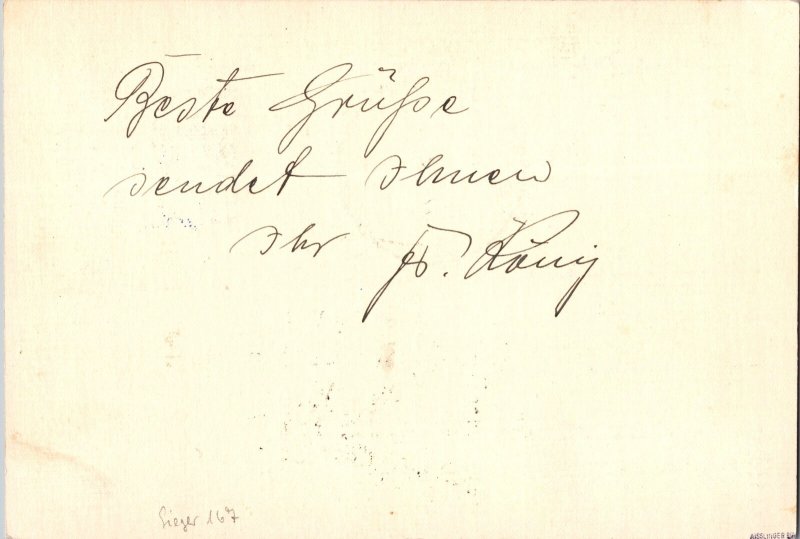 Beste Grüße
sendet Ihnen
Ihr Fr. König
Sieger 167
AISSLINGER